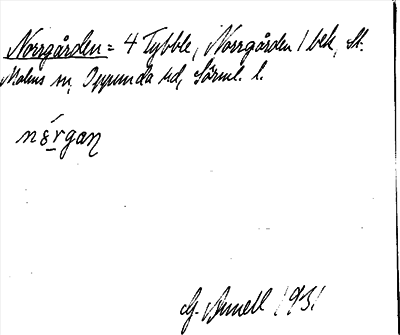 Norrgården = 4 Tybble, Norrgården 1 bek, St.
Malms sn, Oppunda hd, Sörml. l.
nǿrgan
G. Bucht 1931